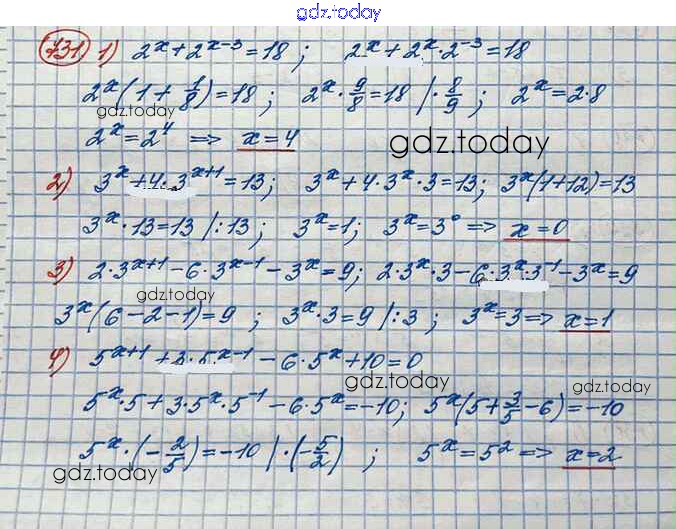 gdz.today
731 1) 2^x + 2^{x-3} = 18 ; 2^x + 2^x · 2^{-3} = 18
2^x (1 + 1/8) = 18 ; 2^x · 9/8 = 18 | · 8/9 ; 2^x = 2·8
2^x = 2^4 => x = 4
gdz.today
gdz.today
2) 3^x + 4 · 3^{x+1} = 13 ; 3^x + 4 · 3^x · 3 = 13 ; 3^x (1+12) = 13
3^x · 13 = 13 | : 13 ; 3^x = 1 ; 3^x = 3^0 => x = 0
3) 2 · 3^{x+1} - 6 · 3^{x-1} - 3^x = 9 ; 2 · 3^x · 3 - 6 · 3^x · 3^{-1} - 3^x = 9
gdz.today
3^x (6 - 2 - 1) = 9 ; 3^x · 3 = 9 | : 3 ; 3^x = 3 => x = 1
4) 5^{x+1} + 3 · 5^{x-1} - 6 · 5^x + 10 = 0
gdz.today
gdz.today
5^x · 5 + 3 · 5^x · 5^{-1} - 6 · 5^x = -10 ; 5^x (5 + 3/5 - 6) = -10
5^x · (- 2/5) = -10 | · (- 5/2) ; 5^x = 5^2 => x = 2
gdz.today